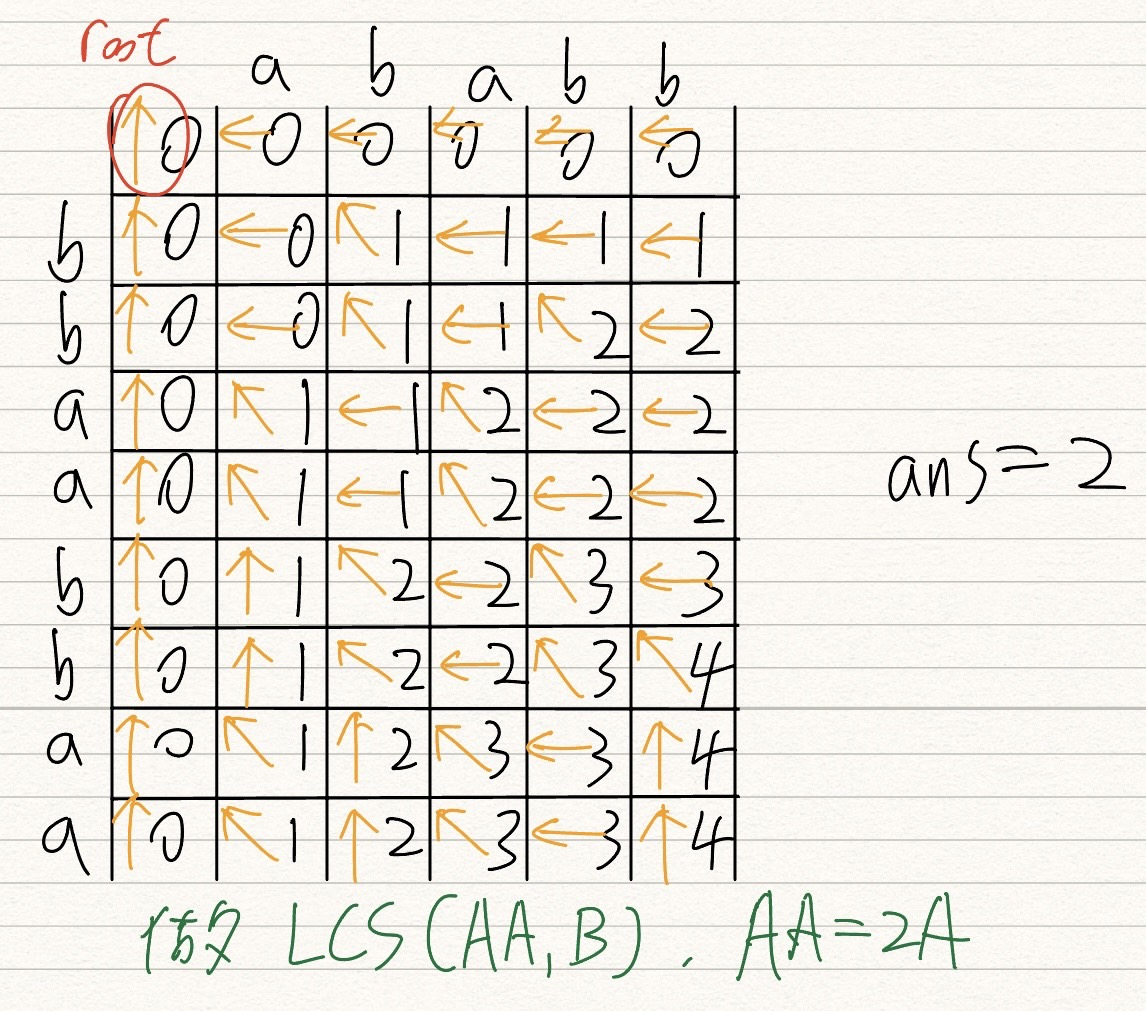 root
a b a b b
↑0 ←0 ←0 ←0 ←0 ←0
b ↑0 ←0 ↖1 ←1 ←1 ←1
b ↑0 ←0 ↖1 ←1 ↖2 ←2
a ↑0 ↖1 ←1 ↖2 ←2 ←2
a ↑0 ↖1 ←1 ↖2 ←2 ←2
ans=2
b ↑0 ↑1 ↖2 ←2 ↖3 ←3
b ↑0 ↑1 ↖2 ←2 ↖3 ↖4
a ↑0 ↖1 ↑2 ↖3 ←3 ↑4
a ↑0 ↖1 ↑2 ↖3 ←3 ↑4
做 LCS(AA,B). AA=2A